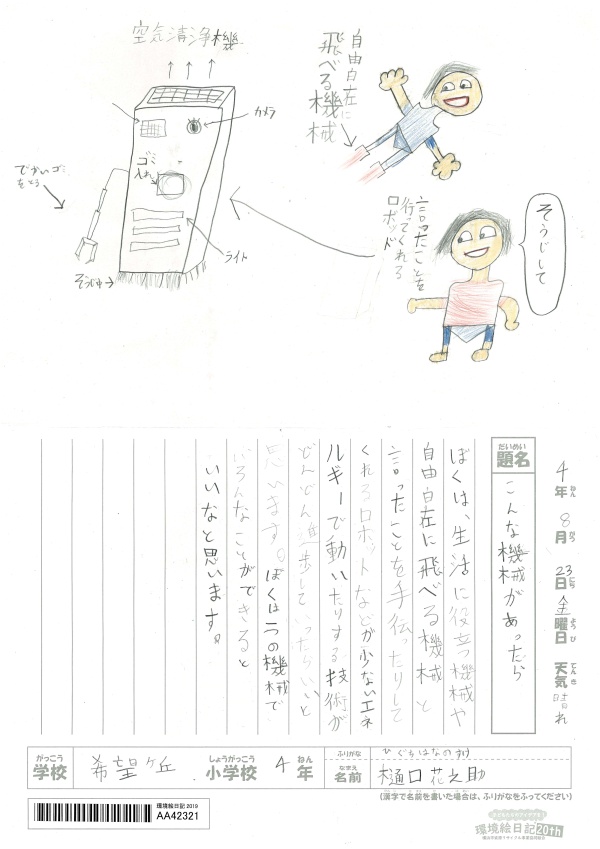 空気清浄機
自由自在に
飛べる機械
カメラ
ゴミ
入れ
でかいゴミ
をとる
ライト
そうじき
言ったことを
行ってくれる
ロボット
そうじして
4年 8月 23日 金曜日 天気 晴れ
ねん がつ にち ようび てんき
だいめい
題名
こんな機械があったら
ぼくは、生活に役立つ機械や
自由自在に飛べる機械と
言ったことを手伝ったりして
くれるロボットなどが少ないエネ
ルギーで動いたりする技術が
どんどん進歩していったらいいと
思います。ぼくは一つの機械で
いろんなことができると
いいなと思います。
がっこう しょうがっこう ねん
学校 希望ヶ丘 小学校 4年
ふりがな ひぐちはなのすけ
なまえ
名前 樋口花之助
(漢字で名前を書いた場合は、ふりがなをふってください)
環境絵日記 2019
AA42321
環境絵日記 20th